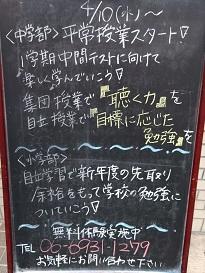 4/10(水)〜
<中学部>平常授業スタート!
1学期中間テストに向けて
楽しく学んでいこう!
集団授業で『聴く力』を
自立授業で『目標に応じた
勉強』を
<小学部>
自立学習で新年度の先取り
余裕をもって学校の勉強に
ついていこう!
無料体験実施中
TEL 06-6931-1279
お気軽にお問い合わせ下さい